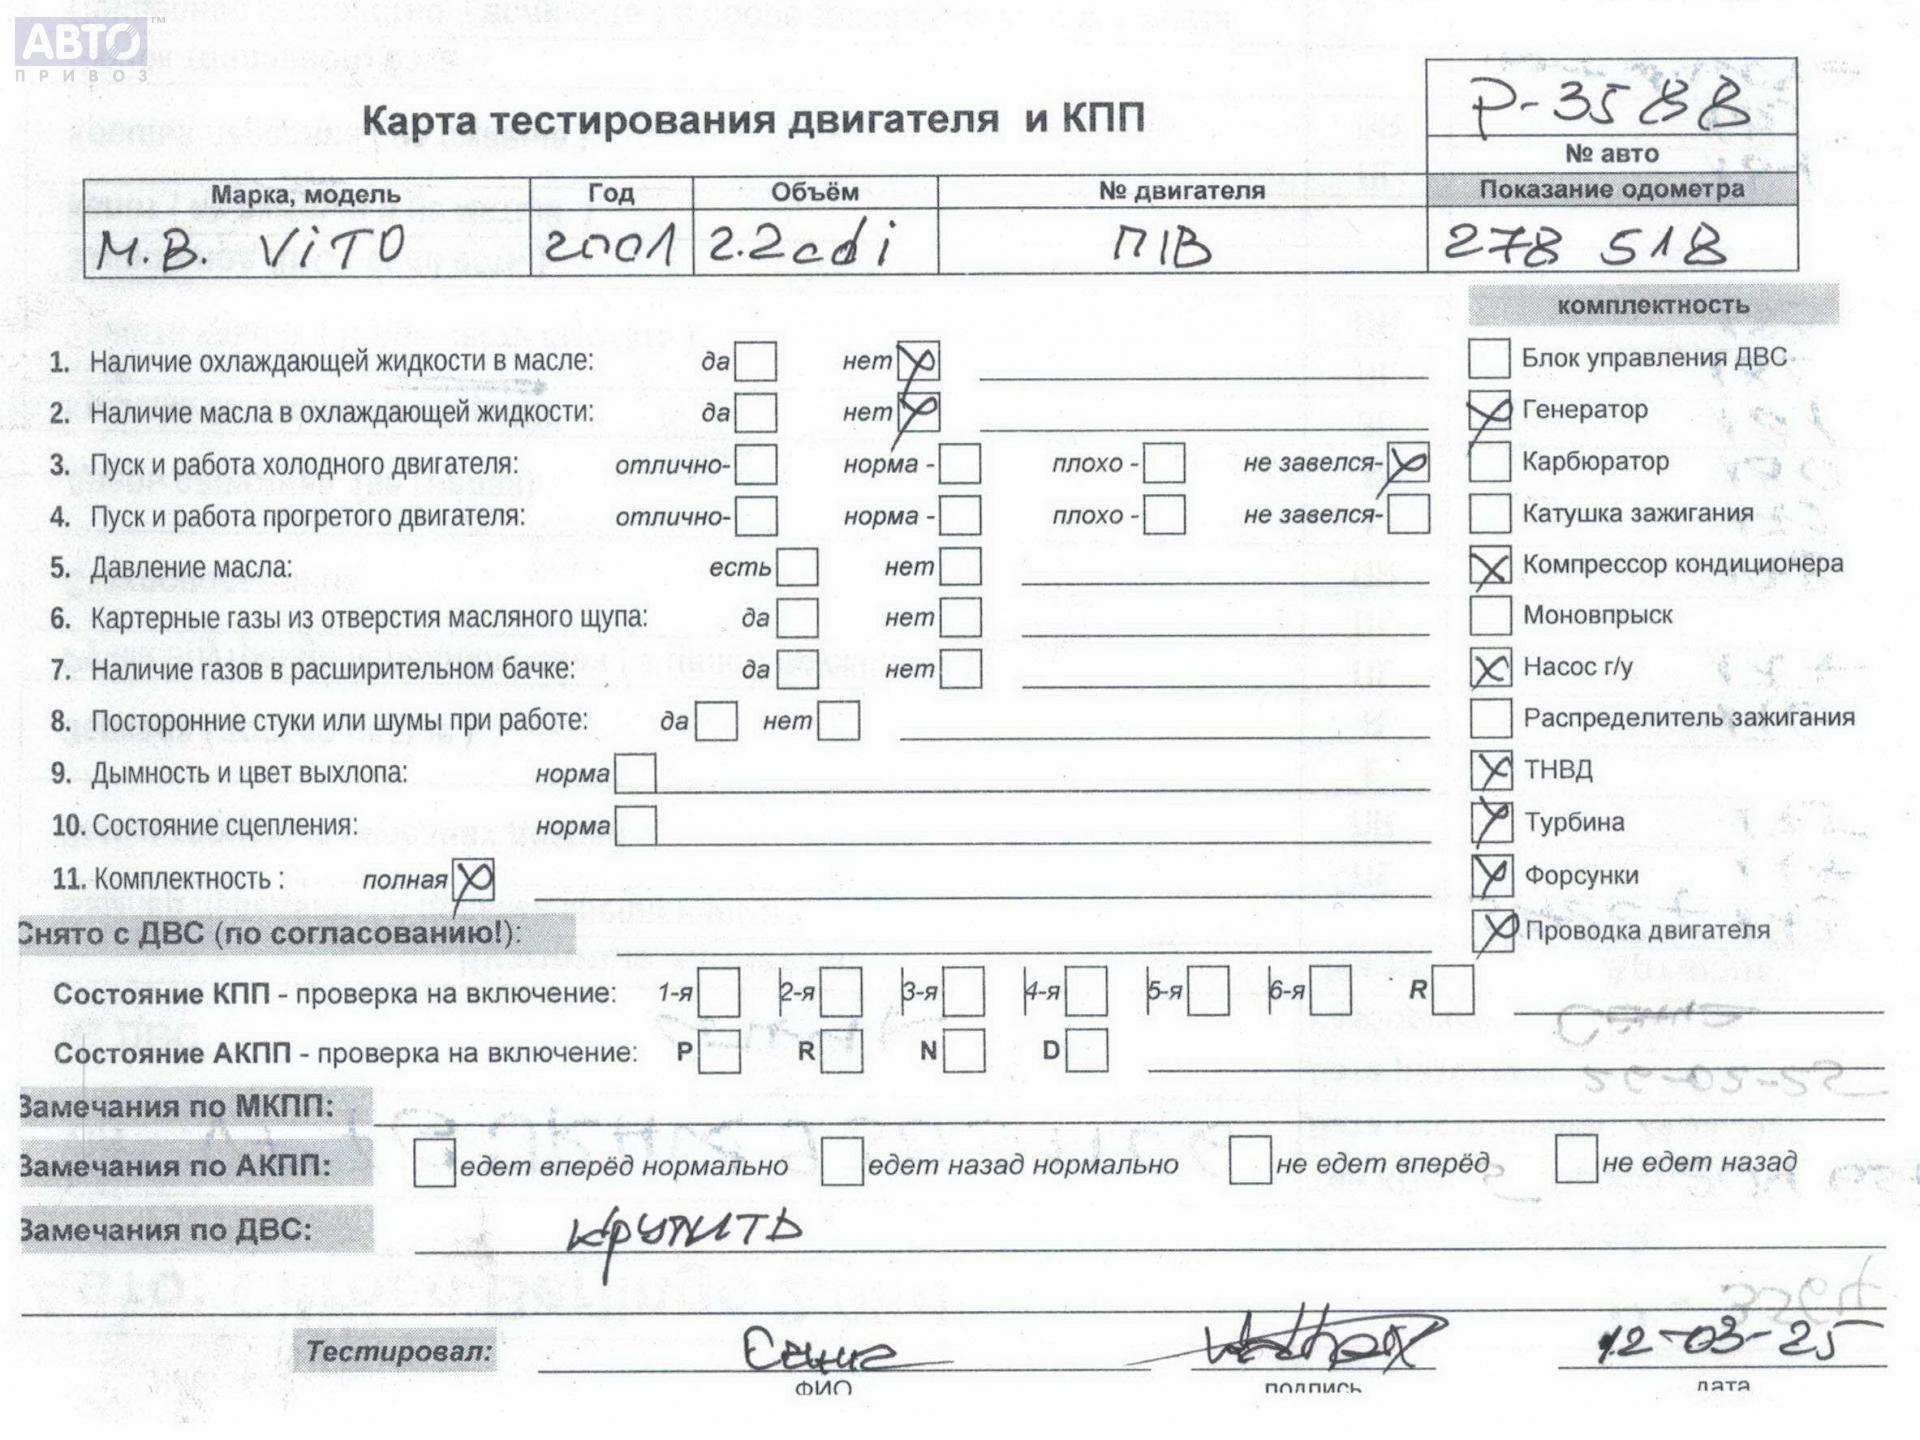 АВТО™
ПРИВОЗ
Карта тестирования двигателя и КПП
P-3588
№ авто
Марка, модель Год Объём № двигателя Показание одометра
M.B. ViTO 2001 2.2cdi П1В 278 518
комплектность
1. Наличие охлаждающей жидкости в масле: да нет Блок управления ДВС
2. Наличие масла в охлаждающей жидкости: да нет Генератор
3. Пуск и работа холодного двигателя: отлично- норма - плохо - не завелся- Карбюратор
4. Пуск и работа прогретого двигателя: отлично- норма - плохо - не завелся- Катушка зажигания
5. Давление масла: есть нет Компрессор кондиционера
6. Картерные газы из отверстия масляного щупа: да нет Моновпрыск
7. Наличие газов в расширительном бачке: да нет Насос г/у
8. Посторонние стуки или шумы при работе: да нет Распределитель зажигания
9. Дымность и цвет выхлопа: норма ТНВД
10. Состояние сцепления: норма Турбина
11. Комплектность : полная Форсунки
Снято с ДВС (по согласованию!): Проводка двигателя
Состояние КПП - проверка на включение: 1-я 2-я 3-я 4-я 5-я 6-я R
Состояние АКПП - проверка на включение: P R N D
Замечания по МКПП:
Замечания по АКПП: едет вперёд нормально едет назад нормально не едет вперёд не едет назад
Замечания по ДВС: крутить
Тестировал: 12-03-25
ФИО подпись дата